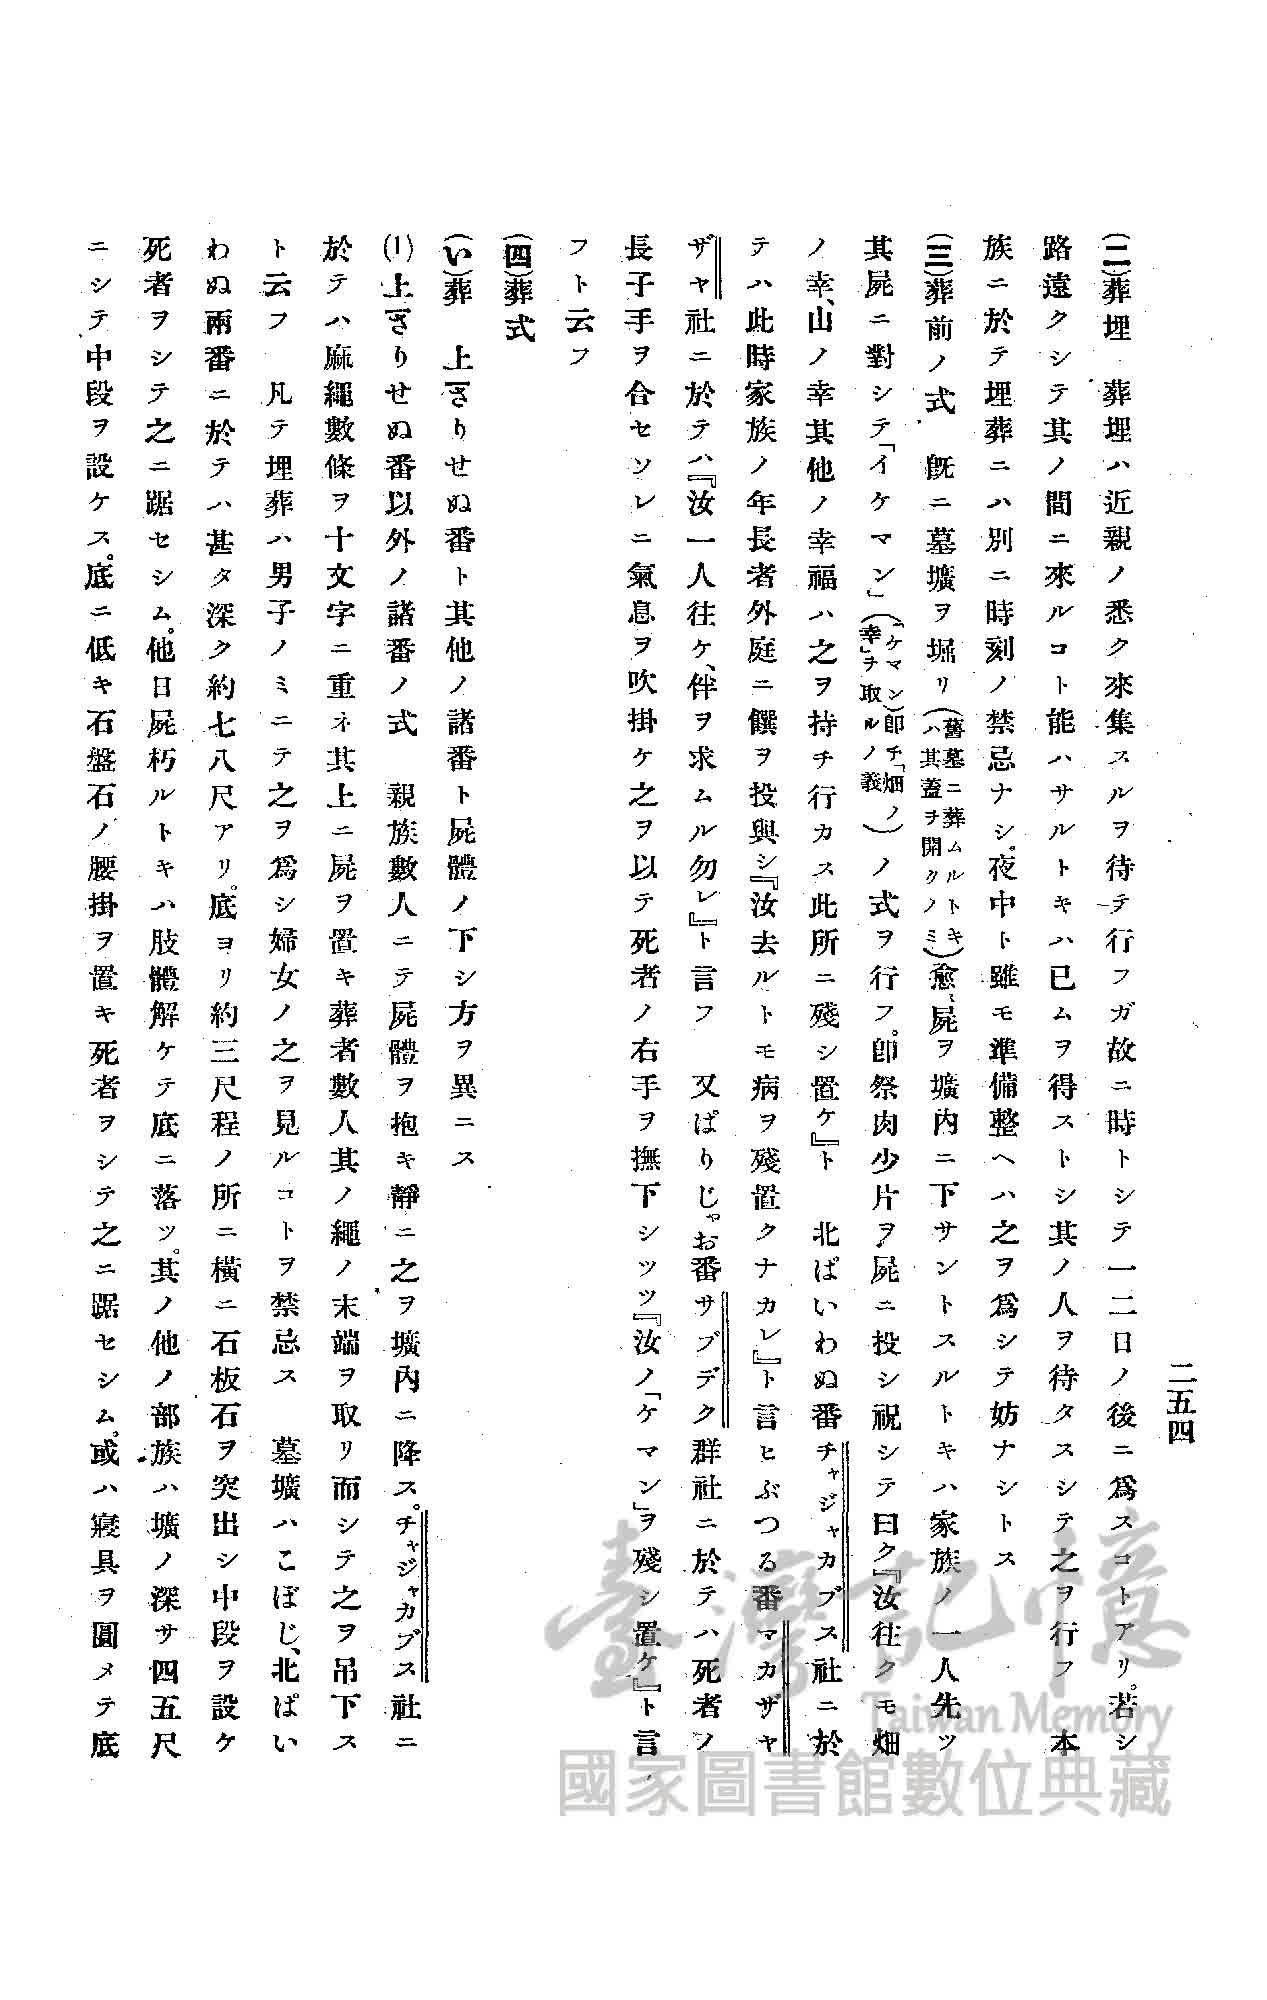 二五四
(二)葬埋 葬埋ハ近親ノ悉ク來集スルヲ待テ行フガ故ニ時トシテ一二日ノ後ニ爲スコトアリ。若シ
路遠クシテ其ノ間ニ來ルコト能ハサルトキハ已ムヲ得ストシ其ノ人ヲ待タスシテ之ヲ行フ 本
族ニ於テ埋葬ニハ別ニ時刻ノ禁忌ナシ。夜中ト雖モ準備整ヘハ之ヲ爲シテ妨ナシトス
(三)葬前ノ式 旣ニ墓壙ヲ堀リ(舊墓ニ葬ムルトキハ其蓋ヲ開クノミ)愈〻屍ヲ壙內ニ下サントスルトキハ家族ノ一人先ツ
其屍ニ對シテ「イケマン」(「ケマン」卽チ「畑ノ幸」ヲ取ルノ義)ノ式ヲ行フ。卽祭肉少片ヲ屍ニ投シ祝シテ曰ク『汝往クモ畑
ノ幸、山ノ幸其他ノ幸福ハ之ヲ持チ行カス此所ニ殘シ置ケ』ト 北ぱいわぬ番チャジャカブス社ニ於
テハ此時家族ノ年長者外庭ニ饌ヲ投與シ『汝去ルトモ病ヲ殘置クナカレ』ト言ヒぶつる番マカザヤ
ザヤ社ニ於テハ『汝一人往ケ、伴ヲ求ムル勿レ』ト言フ 又ぱりじゃお番サブデク群社ニ於テハ死者ノ
長子手ヲ合セソレニ氣息ヲ吹掛ケ之ヲ以テ死者ノ右手ヲ撫下シツツ『汝ノ「ケマン」ヲ殘シ置ケ』ト言
フト云フ
(四)葬式
(い)葬 上ざりせぬ番ト其他ノ諸番ト屍體ノ下シ方ヲ異ニス
(1)上ざりせぬ番以外ノ諸番ノ式 親族數人ニテ屍體ヲ抱キ靜ニ之ヲ壙內ニ降ス。チャジャカブス社ニ
於テハ麻繩數條ヲ十文字ニ重ネ其上ニ屍ヲ置キ葬者數人其ノ繩ノ末端ヲ取リ而シテ之ヲ吊下ス
ト云フ 凡テ埋葬ハ男子ノミニテ之ヲ爲シ婦女ノ之ヲ見ルコトヲ禁忌ス 墓壙ハこぼじ、北ぱい
わぬ兩番ニ於テハ甚タ深ク約七八尺アリ。底ヨリ約三尺程ノ所ニ橫ニ石板石ヲ突出シ中段ヲ設ケ
死者ヲシテ之ニ踞セシム。他日屍朽ルトキハ肢體解ケテ底ニ落ツ。其ノ他ノ部族ハ壙ノ深サ四五尺
ニシテ中段ヲ設ケス。底ニ低キ石盤石ノ腰掛ヲ置キ死者ヲシテ之ニ踞セシム。或ハ寢具ヲ圓メテ底
臺灣記憶
Taiwan Memory
國家圖書館數位典藏